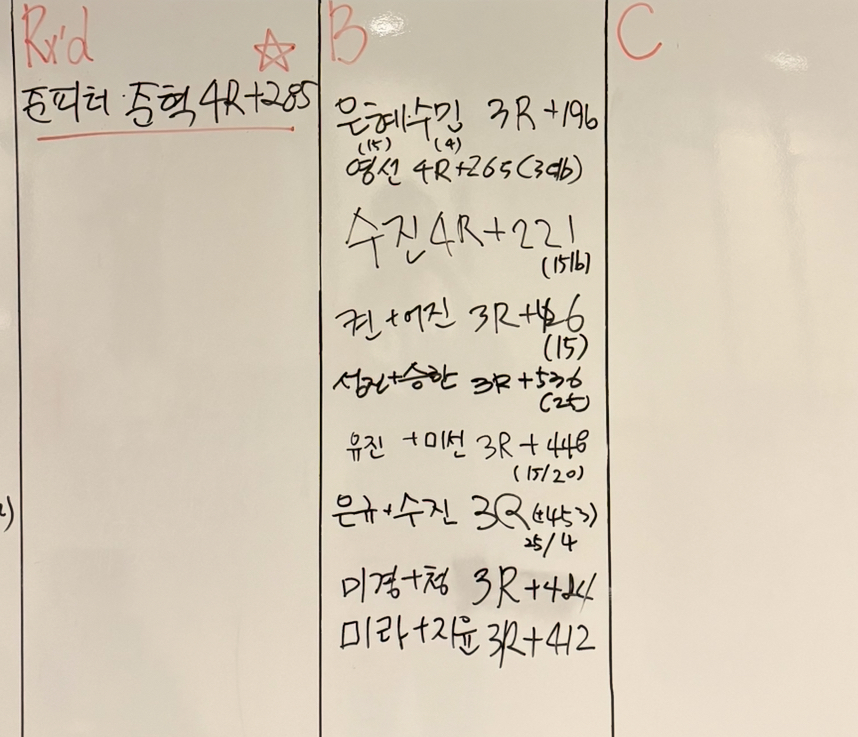 Rx'd ☆
준피터·준혁 4R+285
B
은혜·수민 3R+196
(15) (4)
영선 4R+265(39lb)
수진 4R+221
(15lb)
켠+어진 3R+426
(15)
3R+536
(25)
유진 +미선 3R+448
(15/20)
은규+수진 3R(+453)
25/4
미경+청 3R+424
미라+지윤 3R+412
C